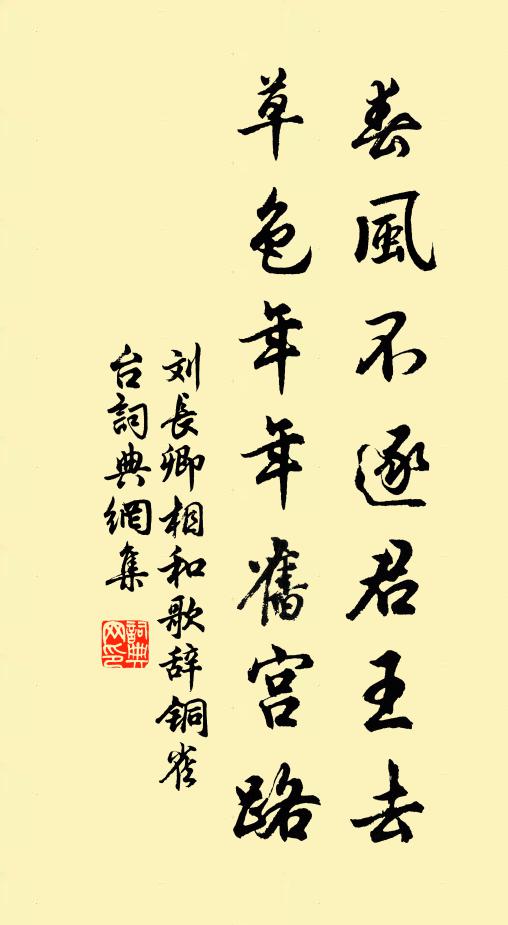 春風不逐君王去
草色年年舊宮路
刘長卿相和歌辞铜雀
台詞典網集
詞典
网印